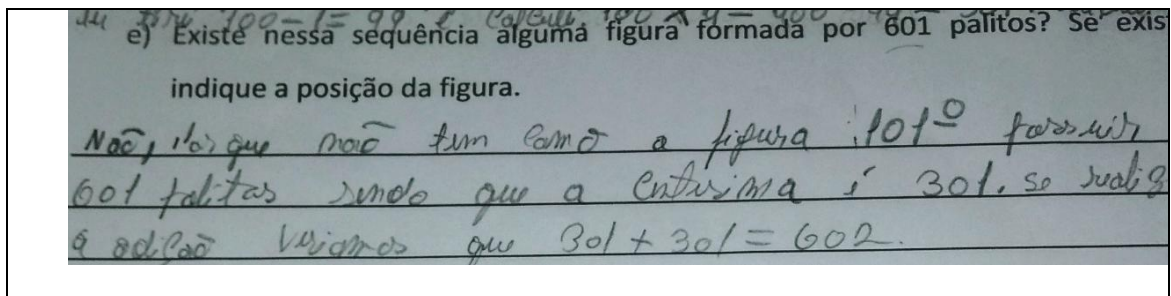 100-1=99
e) Existe nessa sequência alguma figura formada por 601 palitos? Se exis
indique a posição da figura.
Não, por que não tem como a figura 101º possuir
601 palitos sendo que a centésima é 301. se realiz
a adição veriamos que 301 + 301 = 602.